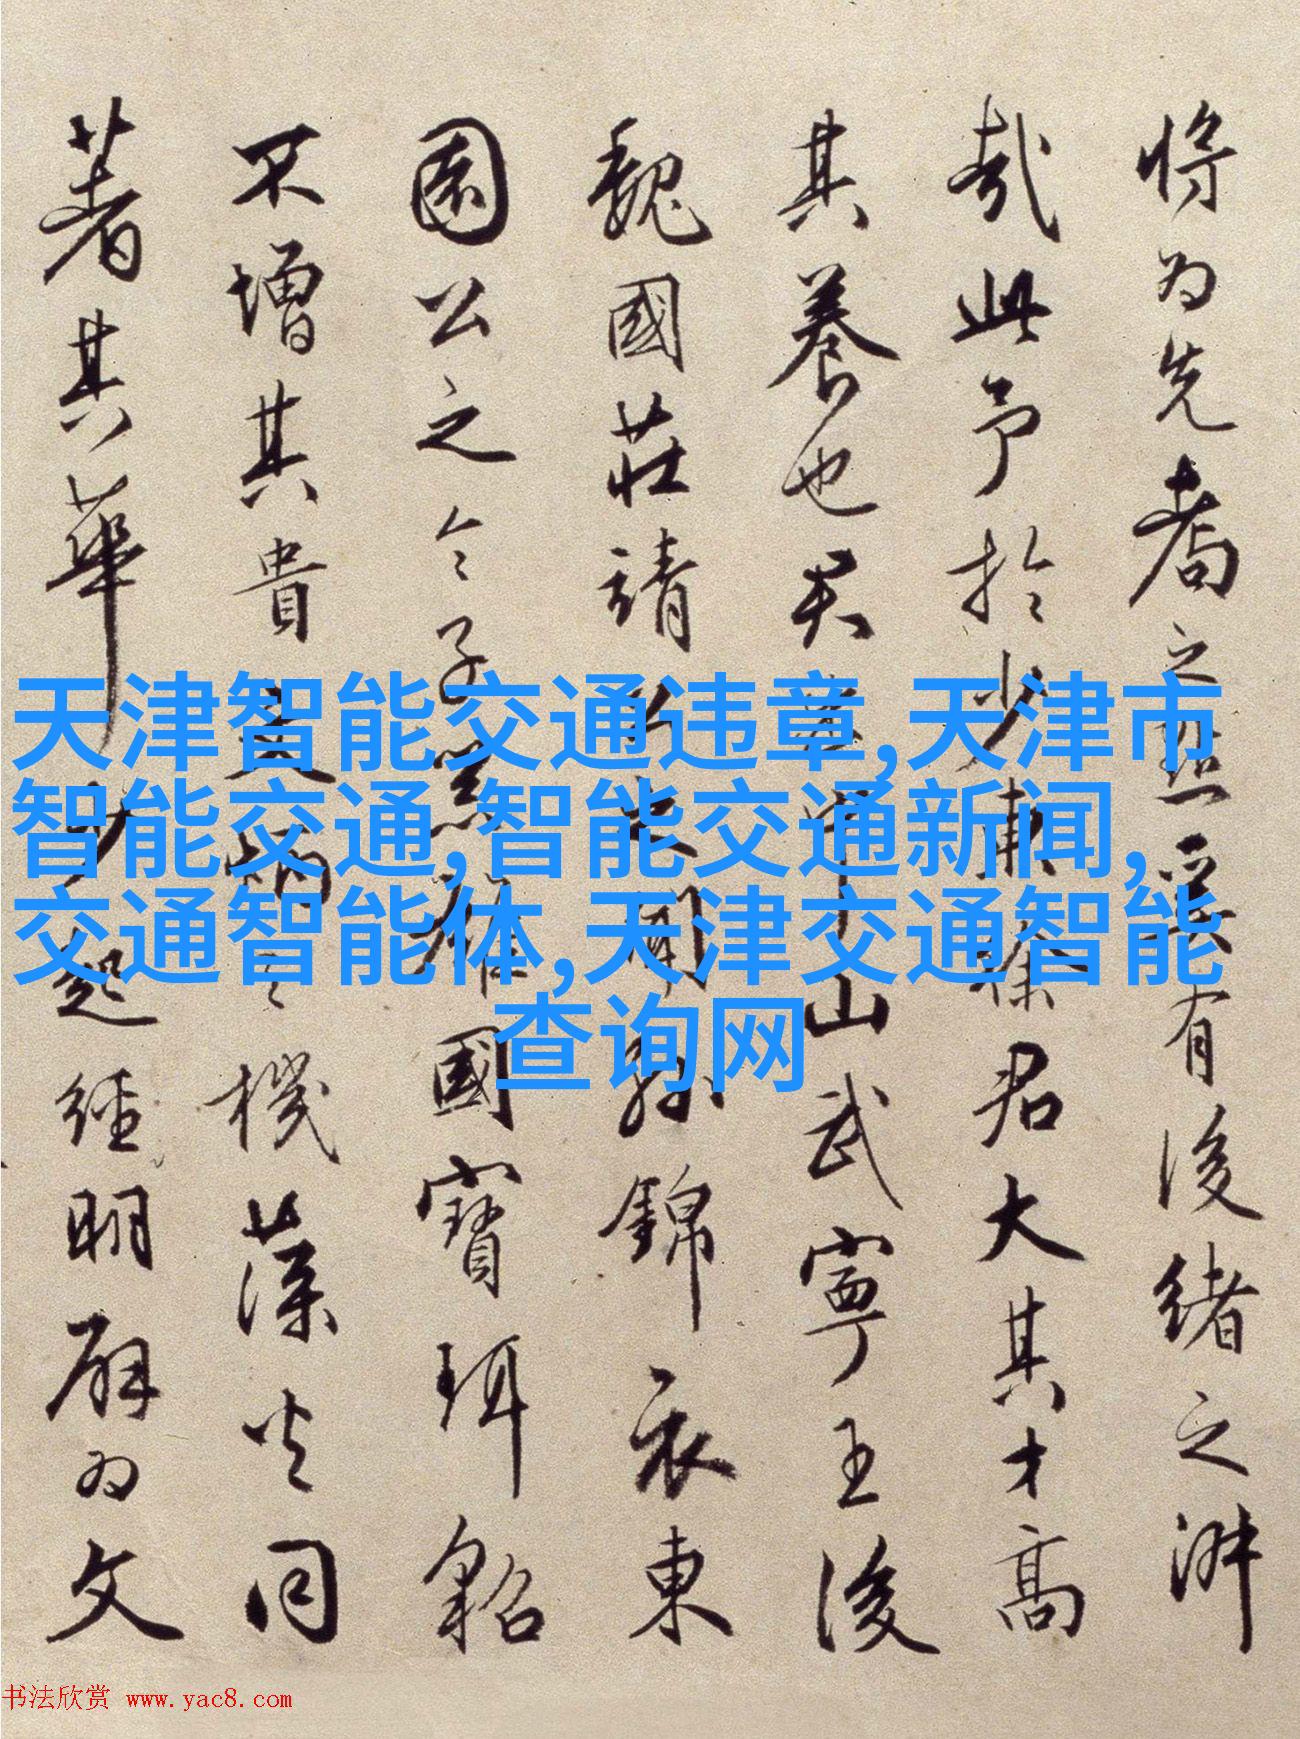 将为先之有後緒之
哉此予於少東徐君大其才高
其養也君山武寧王後
魏國莊靖錦衣東
園公之令子國寶珥貂
不增其貴機藻火同
著其華起經明为文
天津智能交通违章,天津市
智能交通,智能交通新闻,
交通智能体,天津交通智能
查询网
书法欣赏 www.yac8.com